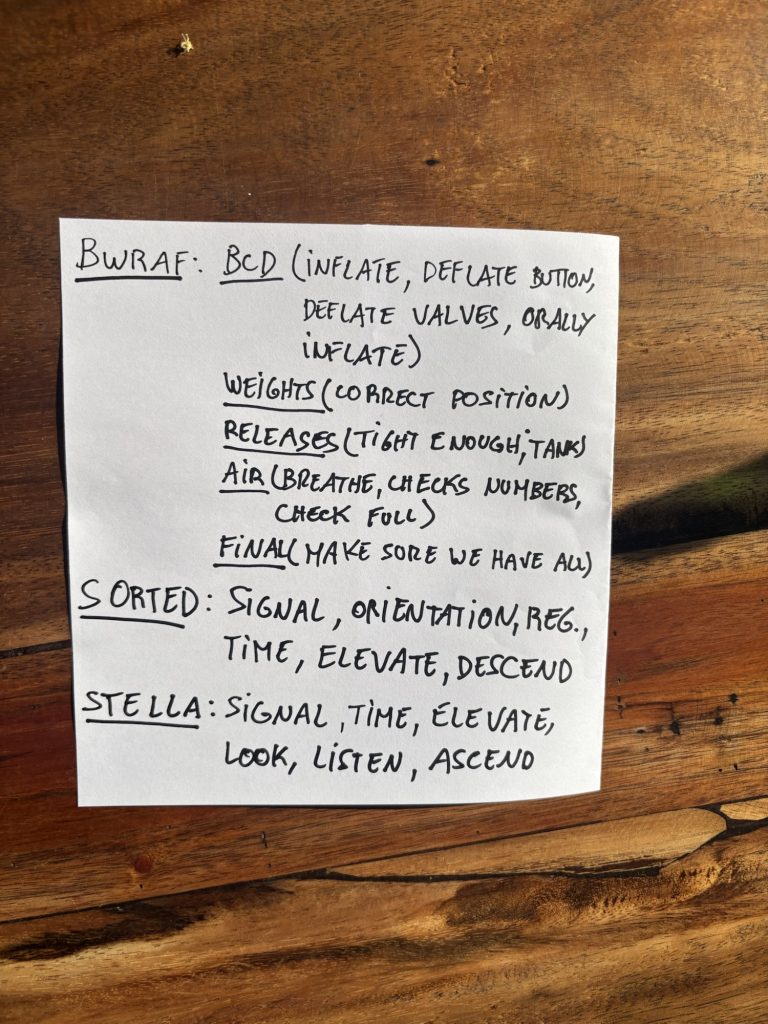 BWRAF: BCD (INFLATE, DEFLATE BUTTON,
DEFLATE VALVES, ORALLY
INFLATE)
WEIGHTS (CORRECT POSITION)
RELEASES (TIGHT ENOUGH, TANK)
AIR (BREATHE, CHECKS NUMBERS,
CHECK FULL)
FINAL (MAKE SORE WE HAVE ALL)
SORTED: SIGNAL, ORIENTATION, REG.,
TIME, ELEVATE, DESCEND
STELLA: SIGNAL, TIME, ELEVATE,
LOOK, LISTEN, ASCEND